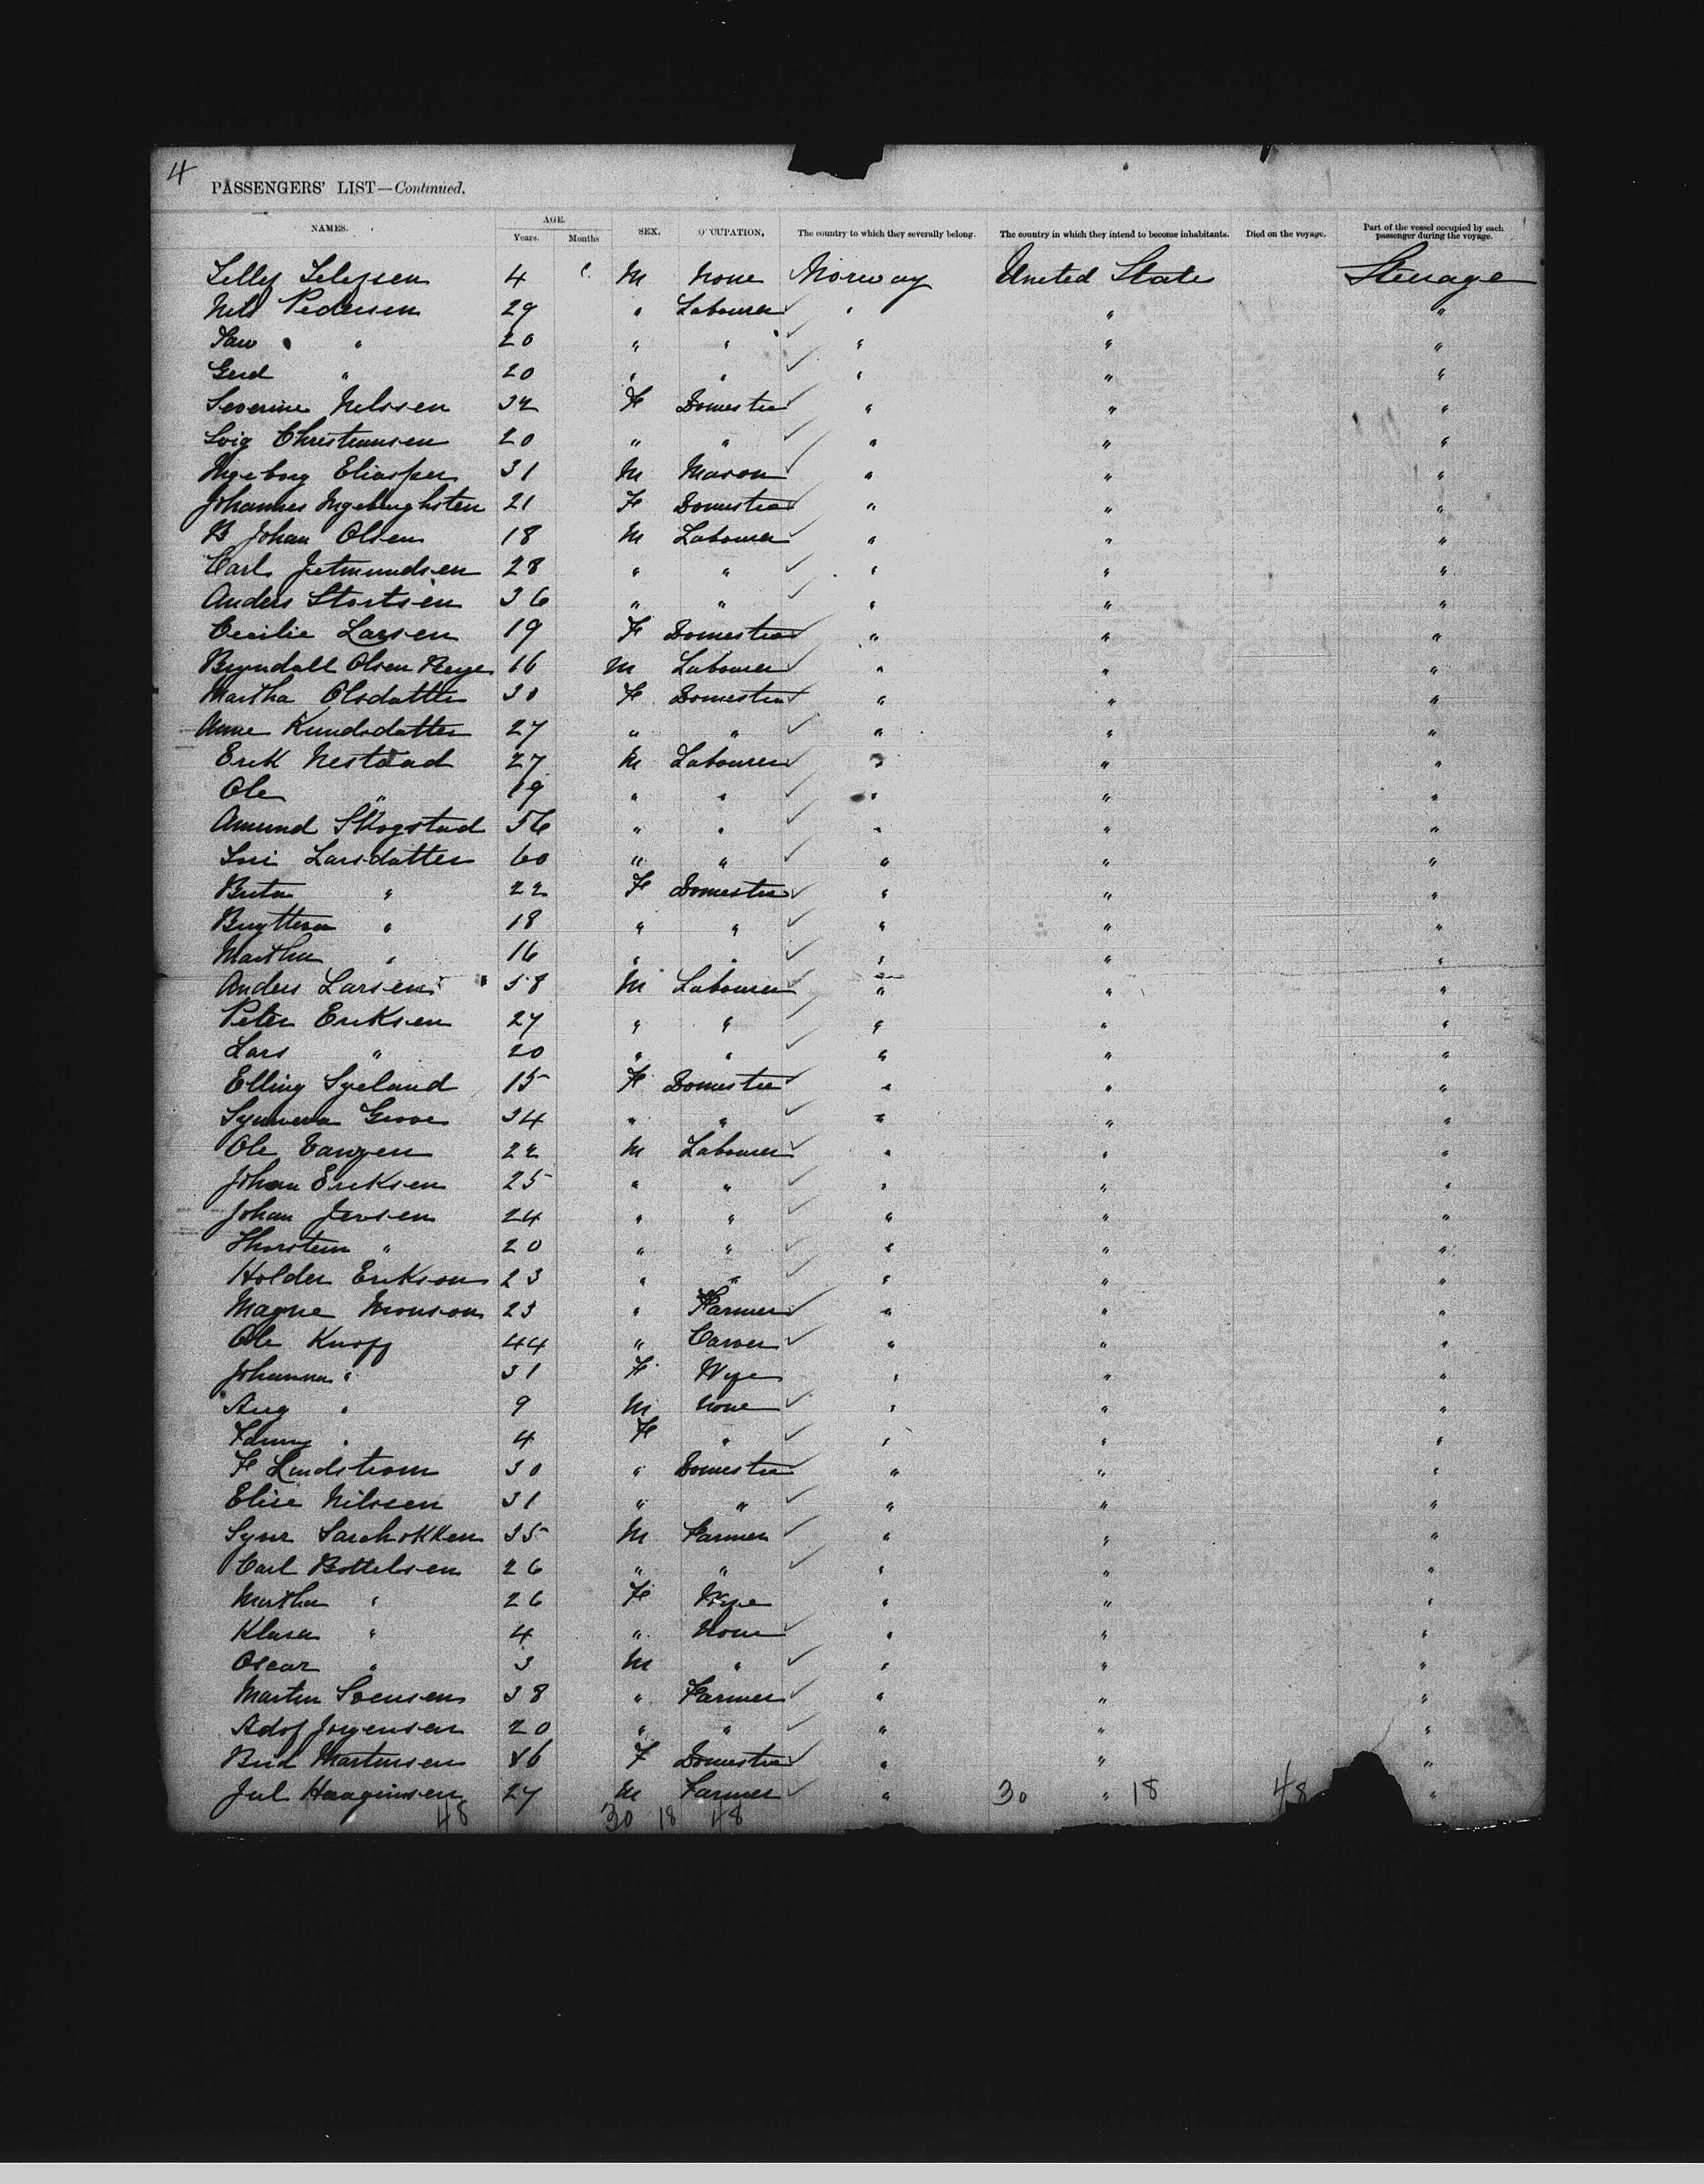 4
PASSENGERS' LIST—Continued.
NAMES. AGE. Years. Months SEX. OCCUPATION, The country to which they severally belong. The country in which they intend to become inhabitants. Died on the voyage. Part of the vessel occupied by each passenger during the voyage.
4 M None Norway United States Steerage
Nils Pedersen 29 " Labourer " " "
" 20 " " " " "
Gerd " 20 " " " " "
Severine Nelssen 32 F Domestic " " "
Christiansen 20 " " " " "
Ingeborg Eliassen 31 M Mason " " "
Johannes 21 F Domestic " " "
B Johan Olsen 18 M Labourer " " "
Carl Jetmundsen 28 " " " " "
Anders Stortsen 36 " " " " "
Cecilie Larsen 19 F Domestic " " "
Bryndall Olsen 16 M Labourer " " "
Martha Olsdatter 30 F Domestic " " "
Anne Knudsdatter 27 " " " " "
Erik Nestaad 27 M Labourer " " "
Ole " 19 " " " " "
Amund Skogstad 56 " " " " "
Larsdatter 60 " " " " "
Brita " 22 F Domestic " " "
" 18 " " " " "
Martha " 16 " " " " "
Anders Larsen 58 M Labourer " " "
Peter Eriksen 27 " " " " "
Lars " 20 " " " " "
Elling Syeland 15 F Domestic " " "
Synneva Grove 34 " " " " "
Ole Vangen 22 M Labourer " " "
Johan Eriksen 25 " " " " "
Johan Jensen 24 " " " " "
Thorstein " 20 " " " " "
Holder Erikson 23 " " " " "
Magne Monson 23 " Farmer " " "
Ole Knoff 44 " Carver " " "
Johanna " 31 F Wife " " "
Aug " 9 M None " " "
Fanny " 4 F " " " "
F Lindstrom 30 " Domestic " " "
Elise Nilssen 31 " " " " "
35 M Farmer " " "
Carl Bottelsen 26 " " " " "
Martha " 26 F Wife " " "
Klara " 4 " None " " "
Oscar " 3 M " " " "
Martin Svensen 38 " Farmer " " "
Adof Jorgensen 20 " " " " "
Martinsen F Domestic " " "
Jul 27 M Farmer " 30 " 18 48 "
48 30 18 48